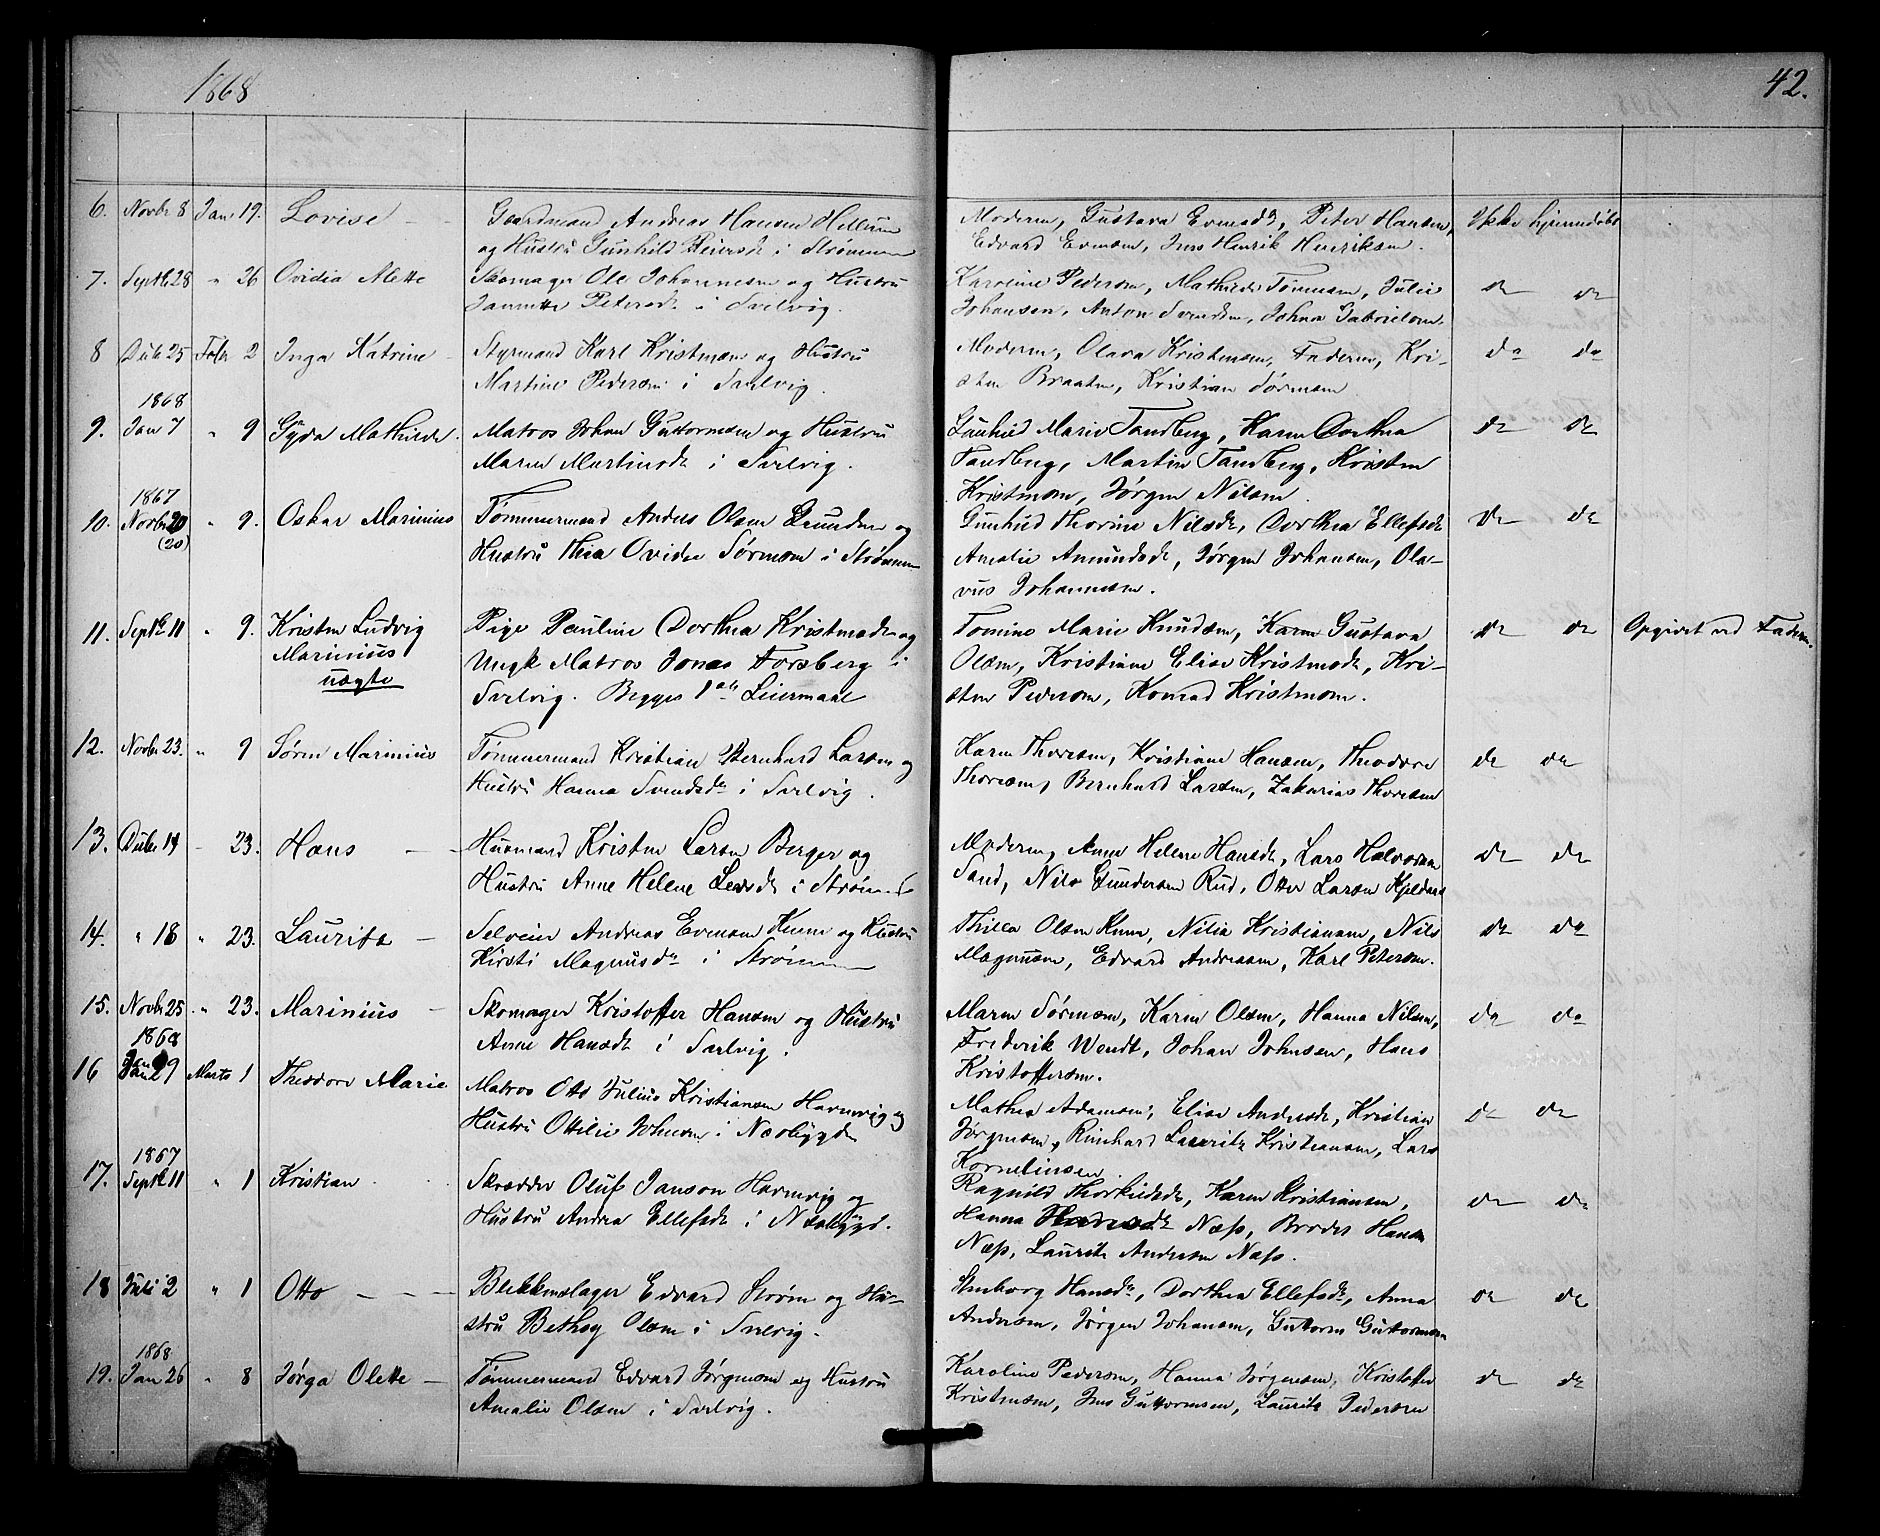 1868
42.
6. Novbr 8 Jan 19. Lovise Gaardmand Andreas Hansen Hellum
og Hustru Gunhild Peversdr i Strømmen
Moderen, Gustava Evensdr, Peter Hansen,
Edvard Evensen, Jens Henrik Henriksen.
Ikke hjemmedøbt
7. Septbr 28 " 26 Ovidia Mette Skomager Ole Johannesen og Hustru
Jannette Petersdr i Svelvig.
Karoline Pedersen, Mathilde Tønnesen, Julie
Johansen, Anton Svendsen, Johan Gabrielsen.
do do
8 Decbr 25 Febr 2 Inga Katrine Styrmand Karl Kristensen og Hustru
Martine Pedersen i Svelvig.
Moderen, Olava Kristensen, Faderen, Kri-
sten Braaten, Kristian Sørensen
do do
1868
9. Jan 7 " 9 Gyda Mathilde. Matros Johan Guttormsen og Hustru
Maren Martinsdr i Svelvig.
Gunhild Marie Tandberg, Karen Dorthea
Tandberg, Martin Tandberg, Kristen
Kristensen, Jørgen Nilsen.
do do
1867
10. Novbr 20 " 9. Oskar Marinius Tømmermand Anders Olsen og
(20) Hustru Thea Ovidia Sørensen i Strømmen
Gunhild Thorine Nilsdr, Dorthea Ellefsdr
Amalie Amundsdr, Jørgen Johansen, Ola-
vus Johannesen.
do do
11. Septbr 11 " 9. Kristen Ludvig Pige Pauline Dorthea Kristensdr og
Marinius Ungk Matros Jonas Forsberg i
uægte Svelvig. Begges 1ste Leiermaal
Tomine Marie Knudsen, Karen Gustava
Olsen, Kristiane Elise Kristensdr, Kri-
sten Pedersen, Konrad Kristensen.
do do Opgivet ved Faderen.
12. Novbr 23. " 9 Søren Marinius Tømmermand Kristian Bernhard Larsen og
Hustru Hanna Svendsdr i Svelvig.
Karen Thoresen, Kristiane Hansen, Theodore
Thoresen, Bernhard Larsen, Zakarias Thoresen
do do
13. Decbr 14 - 23. Hans Husmand Kristen Larsen Berger og
Hustru Anne Helene Larsdr i Strømm
Moderen, Anne Helene Hansdr, Lars Halvorsen
Sand, Nils Gundersen Rud, Otter Larsen Kjeldaas
do do
14. " 18 " 23. Laurits Selveier Andreas Evensen Kinn og Hustru
Kirsti Magnusdr i Strømmen
Thilea Olsen Kinn, Nilia Kristiansen, Nils
Magnusen, Edvard Andreasen, Karl Petersen.
do do
15. Novbr 25 " 23. Marinius Skomager Kristoffer Hansen og Hustru
Anne Hansdr i Svelvig.
Maren Sørensen, Karen Olsen, Hanna Nilsen,
Frederik Wendt, Johan Johnsen, Hans
Kristoffersen.
do do
1868
16 Jan 29 Marts 1 Theodora Marie Matros Otto Julius Kristiansen Havnevig og
Hustru Ottilie Johnsen i Nesbygden
Mathea Adamsen, Elise Andersdr, Kristian
Jørgensen, Reinhard Laurits Kristiansen, Lars
Korneliusen.
do do
1867
17. Septbr 11 " 1 Kristian Skrædder Oluf Janson Havnevig og
Hustru Andrea Ellefsdr i Nesbygd.
Ragnild Thorkildsdr, Karen Kristiansen,
Hanna Næss, Broder Hansen
Næss, Laurits Andersen Næss.
do do
18 Juli 2 " 1 Otto Blikkenslager Edvard Strøm og Hu-
stru Bethsy Olsen i Svelvig.
Stinborg Hansdr, Dorthea Ellefsdr, Anna
Andersen, Jørgen Johansen, Guttorm Guttormsen
do do
1868
19. Jan 26 " 8 Jørga Olette Tømmermand Edvard Jørgensen og Hustru
Amalie Olsen i Svelvig.
Karoline Pedersen, Hanna Jørgensen, Kristoffer
Kristensen, Jens Guttormsen, Laurits Pedersen
do do